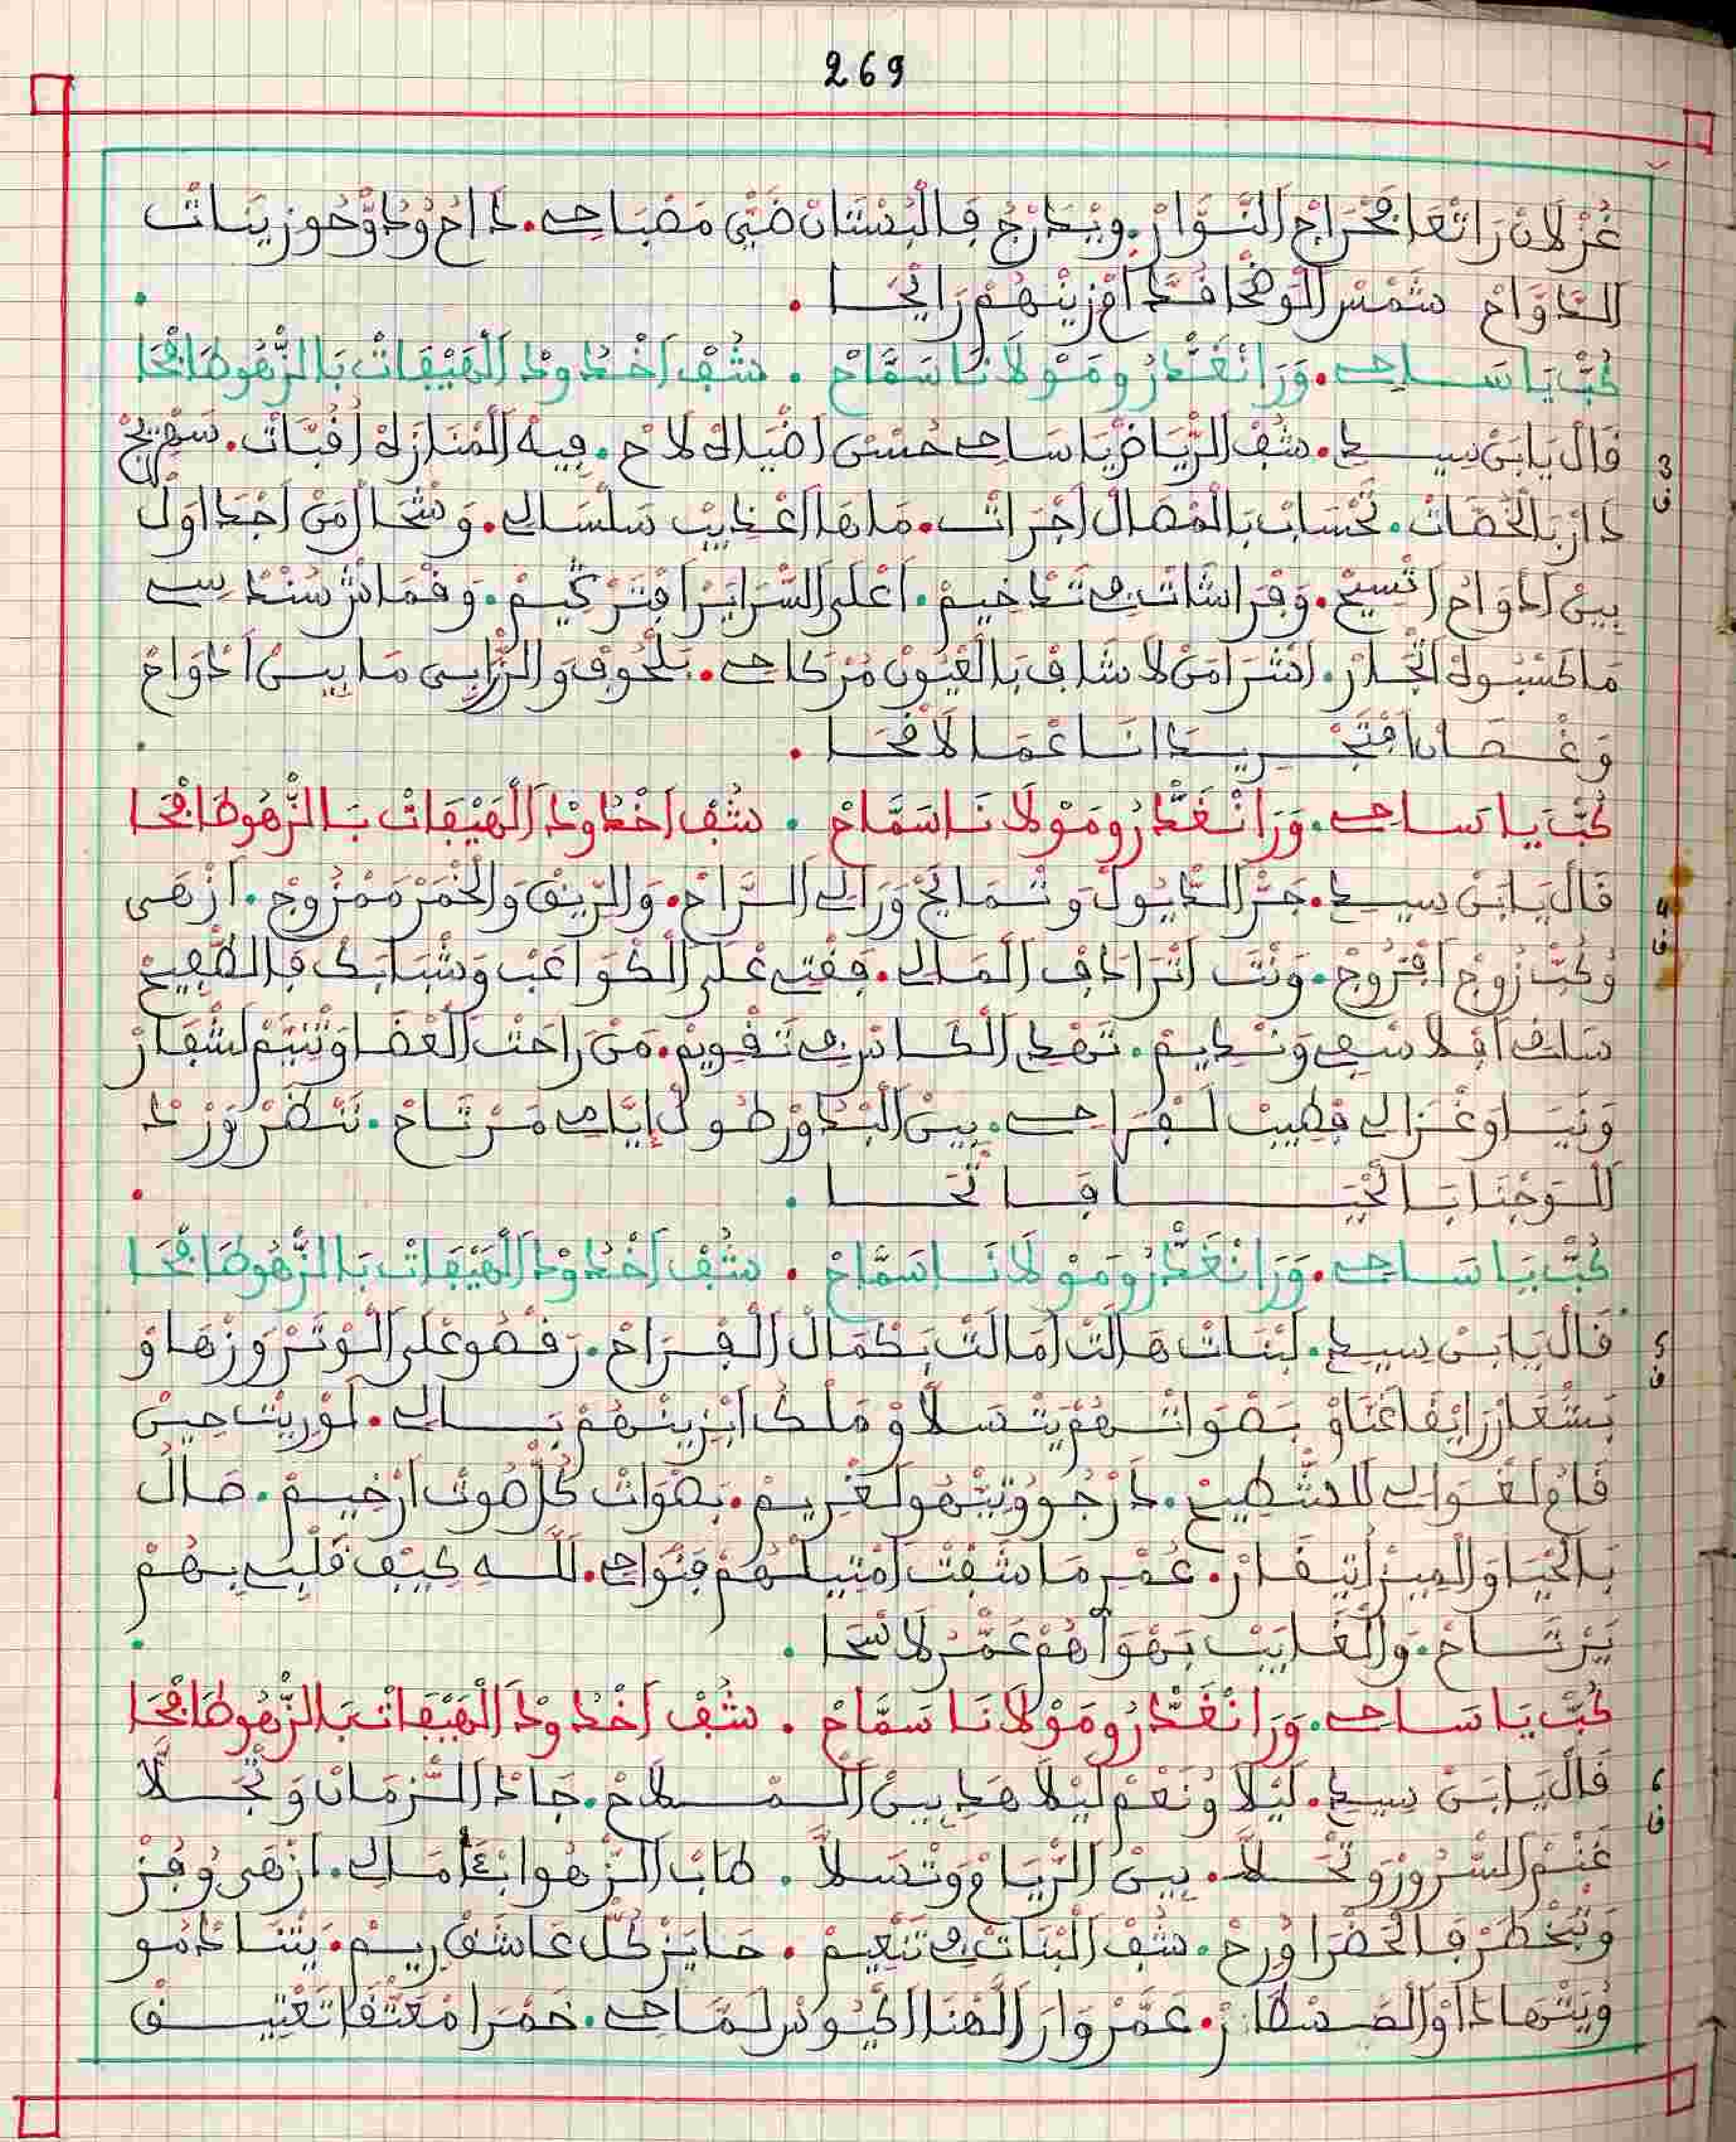 269
غُزْلَانْ رَاتْعَا فَمْرَاجْ النَّوَّارْ. وِيْدَرْجْ فَالْبُسْتَانْ ضَيّْ مَصْبَاحِي. دَاحُ وُدَوّْحُو زِينَاتْ
الدَّوَاحْ شَمْسْ الُوضْحَا فَقْدَاحْ زِينْهُمْ رَايْحَا .
كُبّْ يَا سَاحِي. وَرَا نْغَدْرُو مَوْلَانَا سَمَّاحْ . شُفْ اخْدُودْ الْهَيْفَاتْ بَالزّْهُو طَافْحَا
3 ف
قَالْ يَابَنْ سِيدِي. شُفْ الرِّيَاضْ يَا سَاحِي حُسْنْ اضْيَاهْ لَاحْ. فِيهْ الْمْنَازَهْ اقُبَّاتْ. سَهْرِيجْ
دَارْ بَالْخَصَّاتْ. تَحْسَابْ بَالْمْصَالْ اجْرَاتْ. مَاهَا اعْذِيبْ سَلْسَالِي. وَشْحَالْ مَنْ اجْدَاوَلْ
بِينْ ادْوَاحْ اتْسِيحْ. وَفْرَاشَاتْ فِي تَدْخِيمْ. اعْلَى السّْرَايَرْ افْتَرْكِيمْ. وَقْمَاشْ سُنْدْسِي
مَا كَسْبُوهْ اتْجَارْ. اشْرَا مَنْ لَا شَافْ بَالْعْيُونْ مُرْكَاحِي. بَلْحُوفْ وَالزّْرَابِي مَا بِينْ ادْوَاحْ
وَغْصَانْ افْتَجْرِيدَا انْسَاعْمَا لَاقْحَا .
كُبّْ يَا سَاحِي. وَرَا نْغَدْرُو مَوْلَانَا سَمَّاحْ . شُفْ اخْدُودْ الْهَيْفَاتْ بَالزّْهُو طَافْحَا
4 ف
قَالْ يَابَنْ سِيدِي. جَرّْ الدّْيُولْ وَتْمَايَحْ وَرَالِي الرَّاحْ. وَالرِّيقْ وَالْخْمَرْ مَمْزُوجْ. ازْهَى
وُكُبّْ زُوجْ افْزُوجْ. وَنْتَ اتْرَادَفْ الْمَالِي. فِقْتِي عْلَى الْكْوَاعَبْ وَشْبَابَكْ فَالطّْفِيحْ
سَلَّفْ اقْلَا سَقِي وَنْدِيمْ. تَهْدِي الْكَاسْ فِي تَقْوِيمْ. مَنْ رَاحْتْ الْعْضَا وَتْنِيَّمْ لَشْفَارْ
وَنَيَا وَغْزَالِي قْطِيبْ لَفْرَاحِي. بِينْ الْبْدُورْ طُولْ إيَّامِي مَرْتَاحْ. نَنْضَرْ وَرْدْ
الْوَجْنَا بَالْحْيَا فَاتْحَا .
كُبّْ يَا سَاحِي. وَرَا نْغَدْرُو مَوْلَانَا سَمَّاحْ . شُفْ اخْدُودْ الْهَيْفَاتْ بَالزّْهُو طَافْحَا
5 ف
قَالْ يَابَنْ سِيدِي. لَبْنَاتْ هَالَتْ امَالَتْ بَكْمَالْ الْفْرَاحْ. رَقْصُو عْلَى الْوْتَرْ وَزْهَاوْ
بَشْعَارْ رَايْقَا غَنَّاوْ بَصْوَاتْهُمْ يَتْسَلَّاوْ مَلْكْ ابْزِينْهُمْ بَالِي. لَوْرِيتْ حِينْ
قَامْ لَغْوَالِي لَلشّْطِيحْ. دَرْجُو وَتِيْهُو لَغْرِيمْ. بَصْوَاتْ كُلّْ صُوتْ ارْخِيمْ. صَالْ
بَالْحْيَا وَالْمِيزْ اتِيقَارْ. عُمْرِي مَا شَفْتْ امْتِيلْهُمْ فَنْوَاحِي. لَلّهْ كِيفْ قَلْبِي بِهُمْ
يَرْتَاحْ. وَالْغَايَبْ بَهْوَاهُمْ عَمّْرْ لَا سْحَا .
كُبّْ يَا سَاحِي. وَرَا نْغَدْرُو مَوْلَانَا سَمَّاحْ . شُفْ اخْدُودْ الْهَيْفَاتْ بَالزّْهُو طَافْحَا
6 ف
قَالْ يَابَنْ سِيدِي. لَيْلَا وُنَعْمْ لَيْلَا هَدِي بِينْ الْمْلَاحْ. جَادْ الزّْمَانْ وَتْجَلَّا
غَنْمْ السّْرُورْ وَتْحَلَّا. بِينْ الرِّيَامْ وَتْسَلَّا. طَابْ الزّْهُو ابْتَأمَالِي. ازْهَى وُفُزْ
وَتْبَخْطَرْ فَالْخَضْرَا وُرِحْ. شُفْ الْبْنَاتْ فِي تَنْعِيمْ . حَايَزْ كُلّْ عَاشَقْ رِيمْ. يَتْنَادْمُو
وُيَتْهَادَاوْ الصَّسْطَارْ. عَمَّرْ وَارَا الْهْنَا الْكْيُوسْ لَمَّاحِي. خَمْرَا مْعَتْقَا تَعْتِيقْ